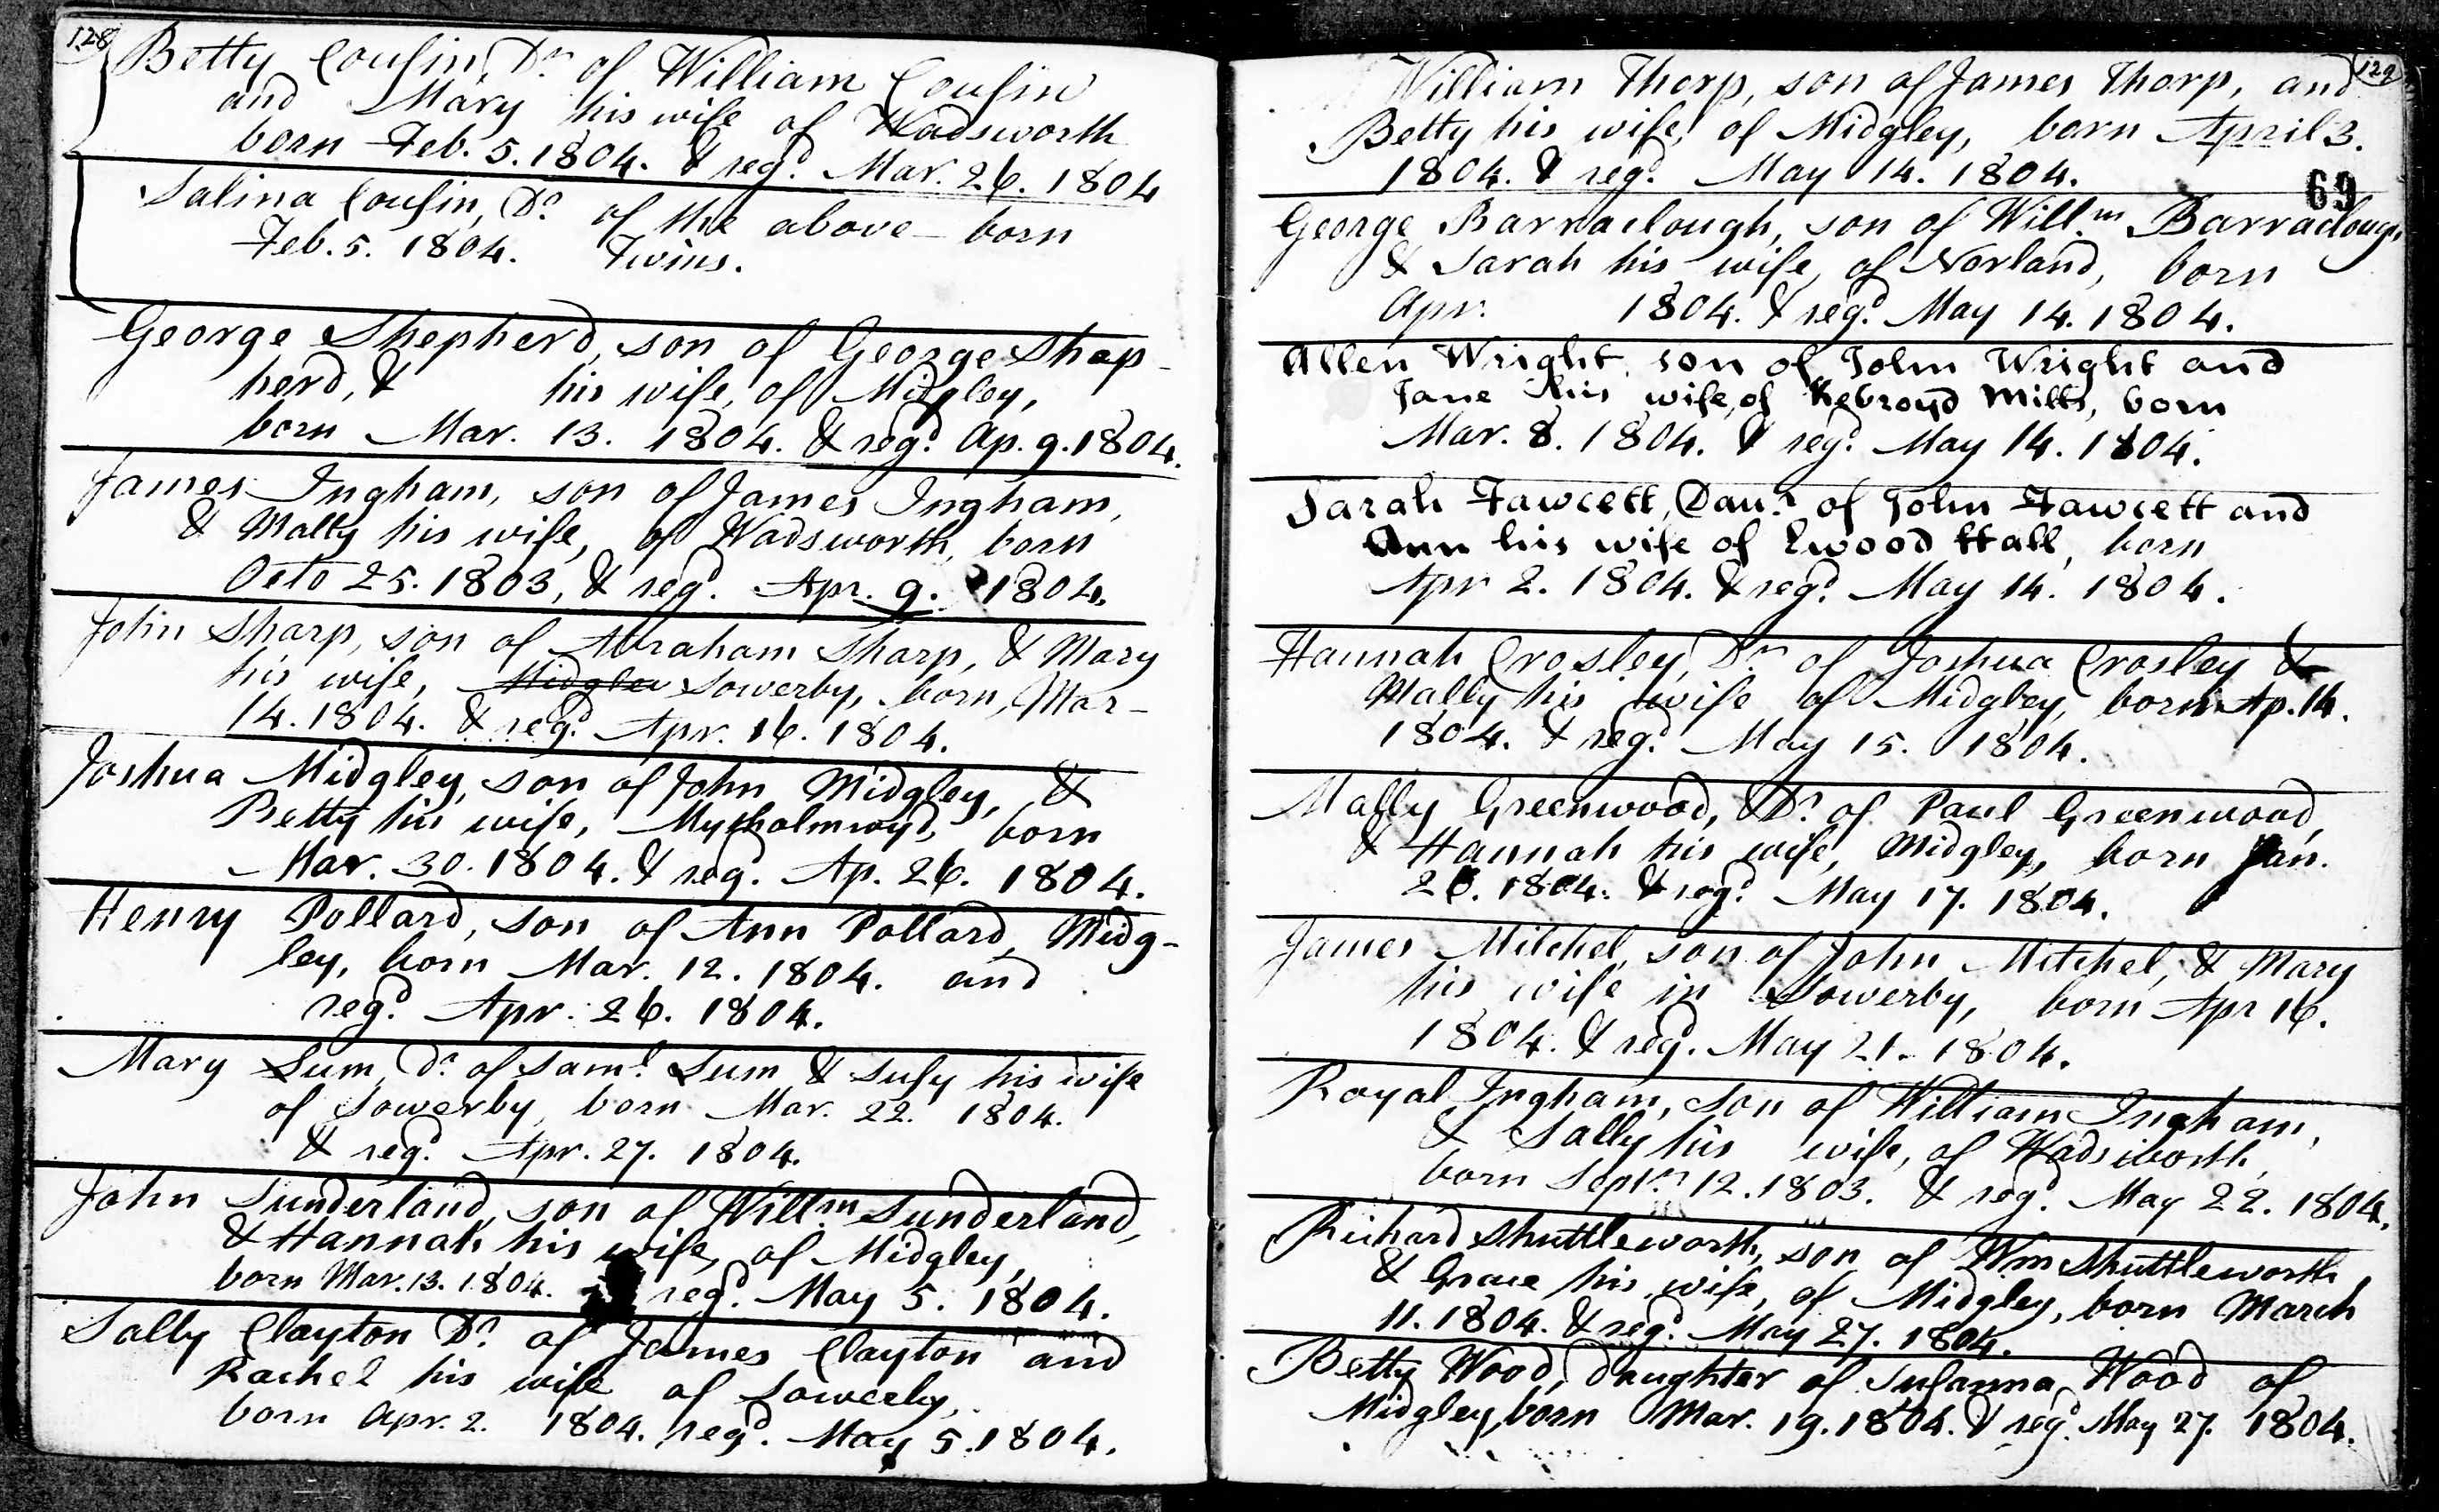 128
Betty Cousin, Dr. of William Cousin
and Mary his wife of Wadsworth
born Feb. 5. 1804. & regd. Mar. 26. 1804
Salina Cousin, Dr. of the above born
Feb. 5. 1804. Twins.
George Shepherd, son of George Shep-
herd, & his wife, of Midgley,
born Mar. 13. 1804. & regd. Ap. 9. 1804.
James Ingham, son of James Ingham,
& Mally his wife, of Wadsworth, born
Octo 25. 1803, & regd. Apr. 9. 1804.
John Sharp, son of Abraham Sharp, & Mary
his wife, Midgley Sowerby, born, Mar-
14. 1804. & regd. Apr. 16. 1804.
Joshua Midgley, son of John Midgley, &
Betty his wife, Mytholmroyd, born
Mar. 30. 1804. & reg. Ap. 26. 1804.
Henry Pollard, son of Ann Pollard, Midg-
ley, born Mar. 12. 1804. and
regd. Apr. 26. 1804.
Mary Sum, Dr. of Saml. Sum & Susy his wife
of Sowerby, born Mar. 22. 1804.
& regd. Apr. 27. 1804.
John Sunderland, son of Willm Sunderland,
& Hannah his wife, of Midgley,
born Mar. 13. 1804. regd. May 5. 1804.
Sally Clayton Dr. of James Clayton and
Rachel his wife of Sowerby,
born Apr. 2. 1804. regd. May 5. 1804.
129
William Thorp, son of James Thorp, and
Betty his wife, of Midgley, born April 3.
1804. & regd. May 14. 1804.
69
George Barraclough, son of Willm. Barraclough
& Sarah his wife, of Norland, born
Apr. 1804. & regd. May 14. 1804.
Allen Wright, son of John Wright and
Jane his wife, of Kebroyd Mills, born
Mar. 8. 1804. & regd. May 14. 1804.
Sarah Fawcett, Daur. of John Fawcett and
Ann his wife of Ewood Hall, born
Apr 2. 1804. & regd. May 14. 1804.
Hannah Crosley, Dr. of Joshua Crosley &
Mally his wife of Midgley, born Ap. 14.
1804. & regd. May 15. 1804.
Mally Greenwood, Dr. of Paul Greenwood,
& Hannah his wife, Midgley, born Jan.
26. 1804. & regd. May 17. 1804.
James Mitchel, son of John Mitchel, & Mary
his wife in Sowerby, born Apr 16.
1804. & regd. May 21. 1804.
Royal Ingham, son of William Ingham,
& Sally his wife, of Wadsworth,
born Septr. 12. 1803. & regd. May 22. 1804.
Richard Shuttleworth, son of Wm Shuttleworth,
& Grace his wife, of Midgley, born March
11. 1804. & regd. May 27. 1804.
Betty Wood, daughter of Susanna Wood of
Midgley, born Mar. 19. 1804. & regd. May 27. 1804.